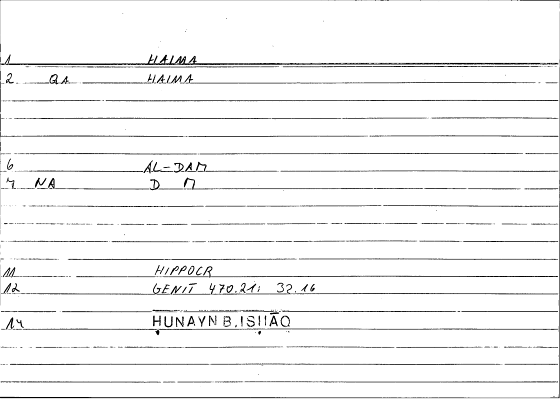 1 HAIMA
2. QA HAIMA
6 AL-DAM
7 NA D M
11 HIPPOCR
12 GENIT 470.21: 32.16
14 HUNAYN B. ISḤĀQ